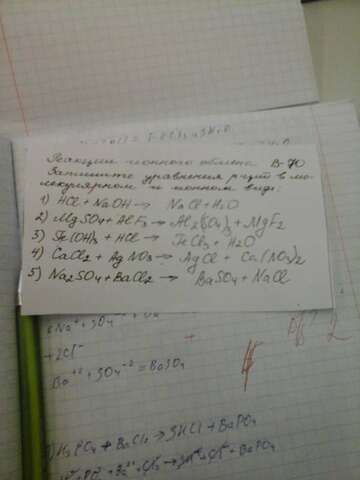 Реакции ионного обмена В-70
Запишите уравнения р-ций в мо-
лекулярном и ионном виде.
1) HCl + NaOH → NaCl + H2O
2) MgSO4 + AlF3 → Al2(SO4)3 + MgF2
3) Fe(OH)3 + HCl → FeCl3 + H2O
4) CaCl2 + AgNO3 → AgCl + Ca(NO3)2
5) Na2SO4 + BaCl2 → BaSO4 + NaCl
+2Cl-
Ba+2 + SO4-2 = BaSO4
H3PO4 + BaCl2 → 3HCl + BaPO4